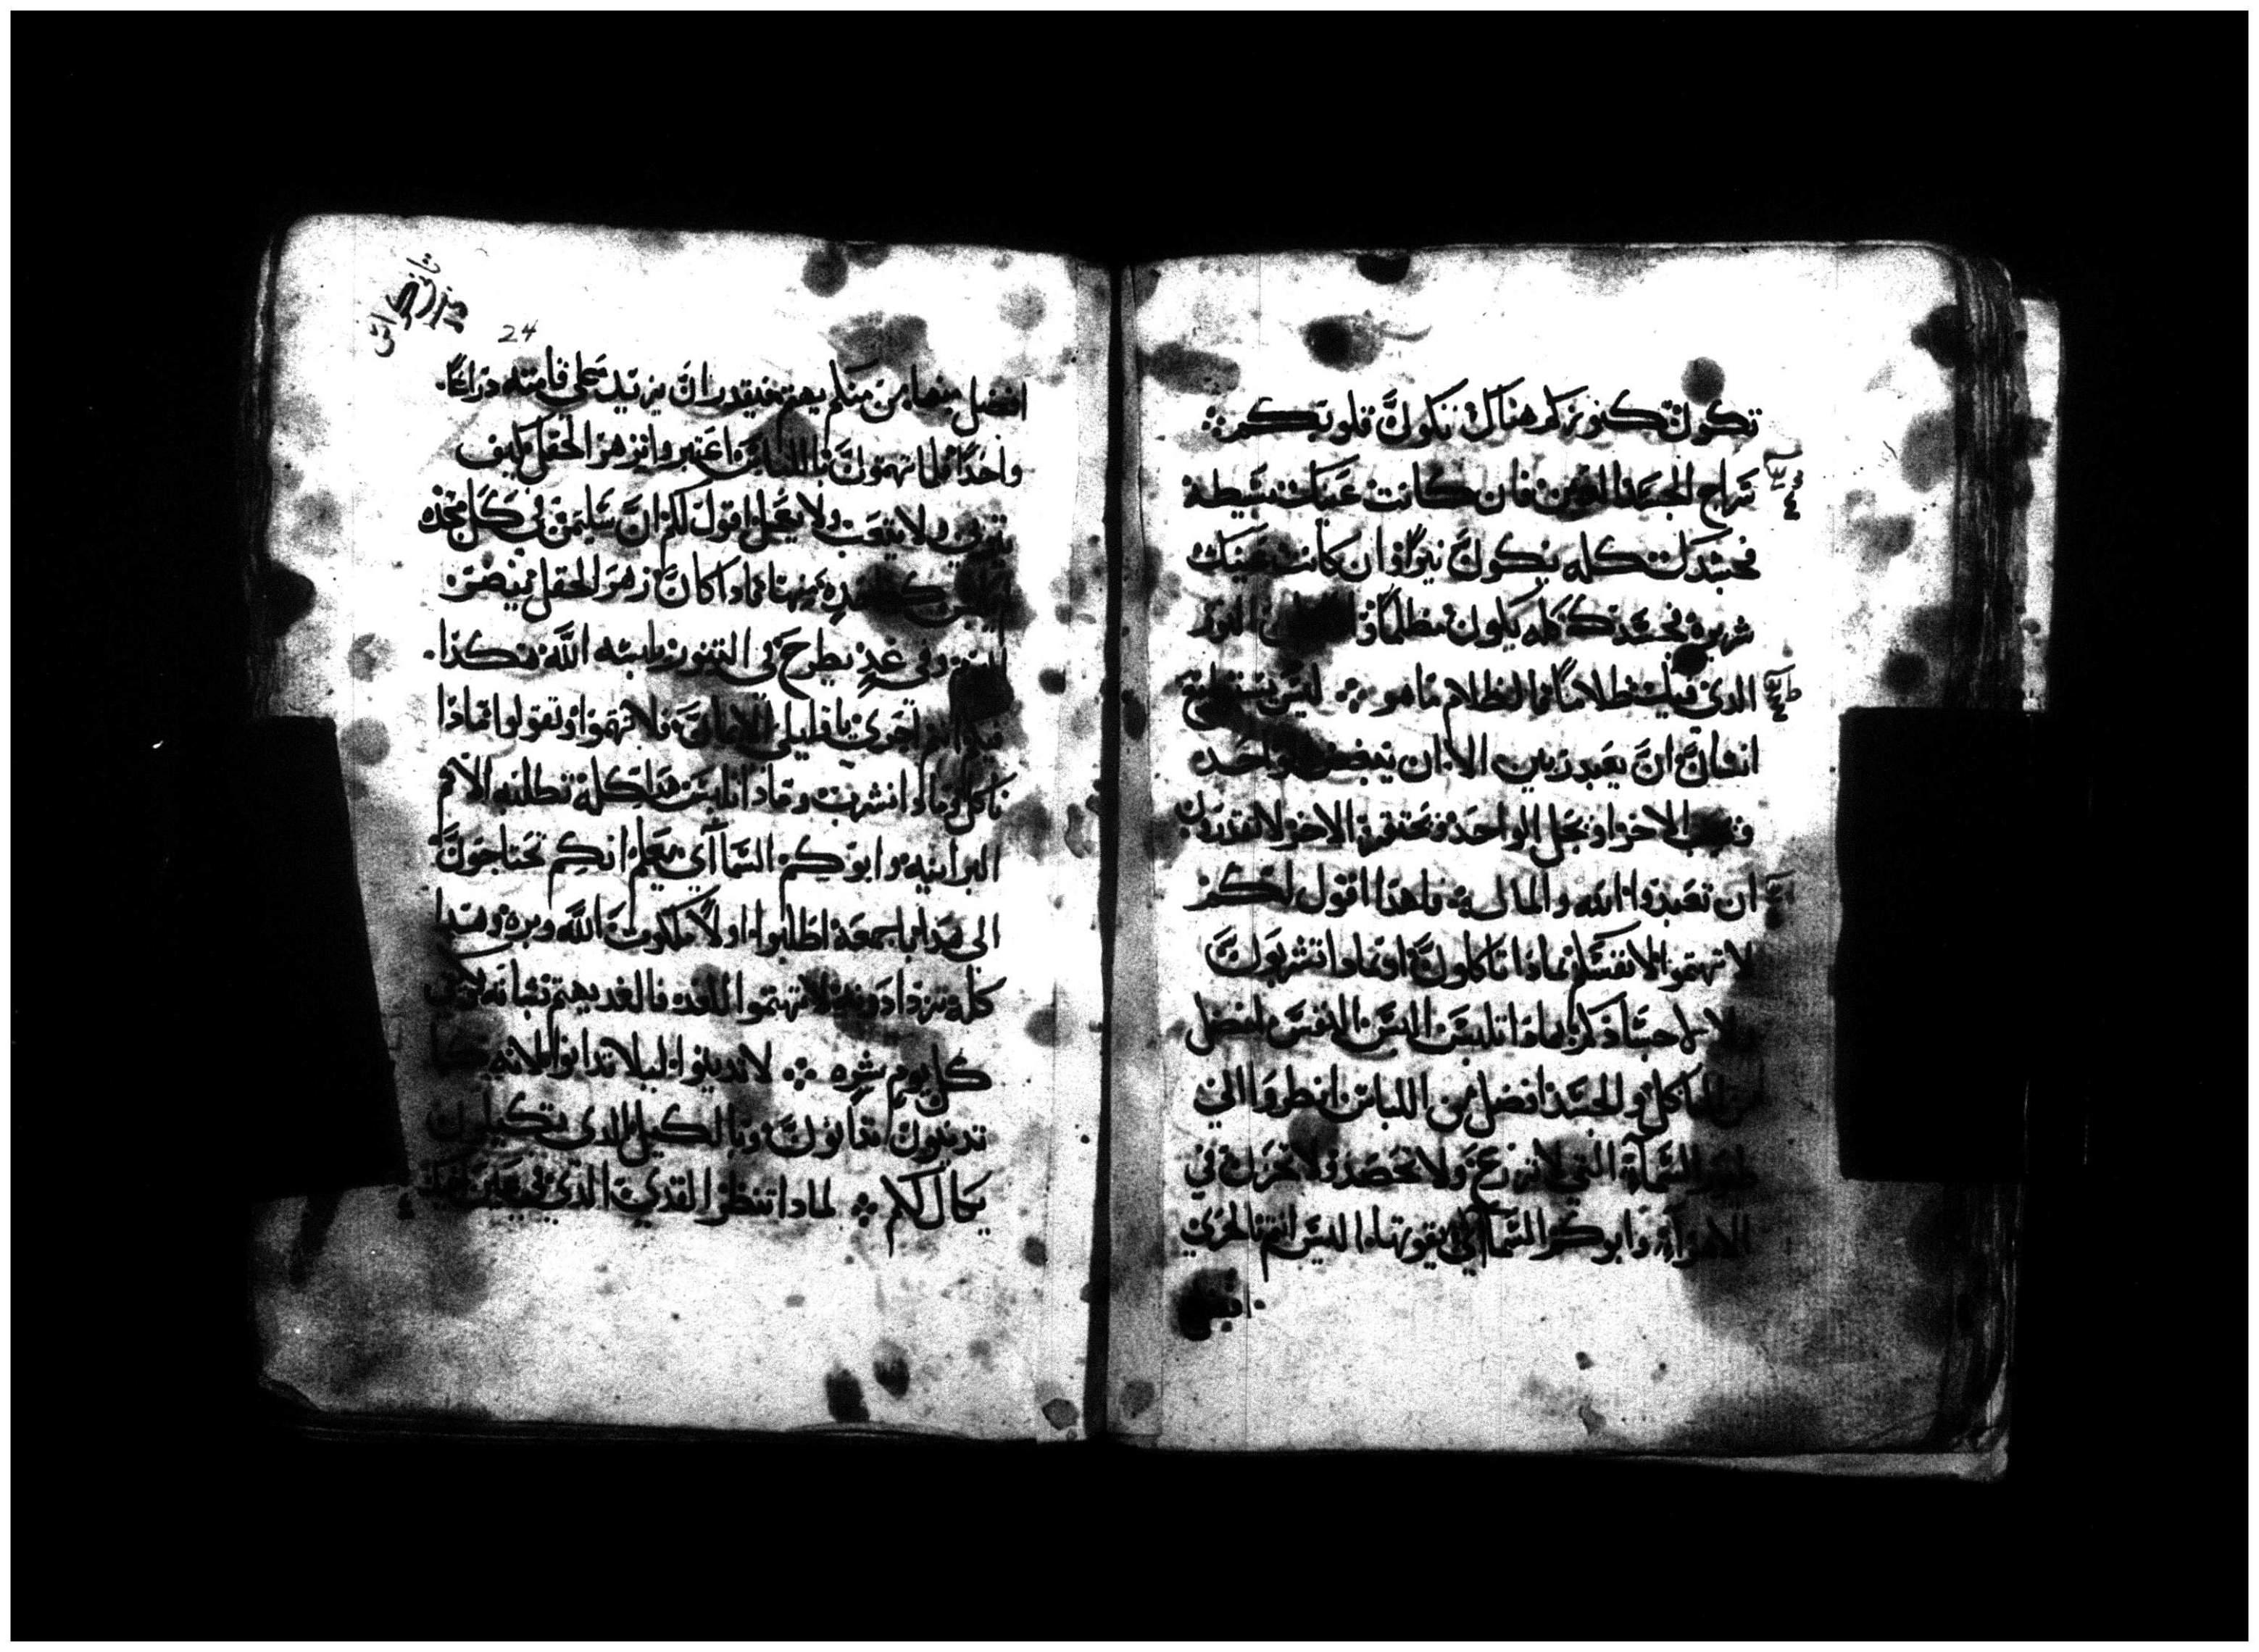 تكون كنوزكم هناك تكون قلوبكم ܀
سراج الجسد العين فان كانت عينك بسيطة
فجسدك كله يكون نيرا وان كانت عينك
شريره فجسدك كله يكون مظلما فان النور
الذي فيك ظلاما فالظلام ما هو ܀ ليس يستطيع
انسان ان يعبد ربين الا ان يبغض واحد
ويحب الاخر او يجل الواحد ويحتقر الاخر لا تقدرون
ان تعبدوا الله والمال فلهذا اقول لكم
لا تهتموا لانفسكم بماذا تاكلون او بماذا تشربون
ولا لاجسادكم بماذا تلبس اليس النفس افضل
من الماكل والجسد افضل من اللباس انظروا الي
طيور السمآء التي لا تزرع ولا تحصد ولا تخزن في
الاهرآء وابوكم السمآئي يقوتها اليس انتم بالحري
افضل
24
افضل منها من منكم يهتم فيقدر ان يزيد علي قامته دراعا
واحدا فلماذا تهتمون باللباس اعتبروا بزهر الحقل كيف
يتربي ولا يتعب ولا يعمل اقول لكم ان سليمن في كل مجده
كان زهر الحقل
وفي غد يطرح في التنور يلبسه الله هكذا
فبكم انتم احري يا قليلي الايمان فلا تهتموا وتقولوا ماذا
ناكل وماذا نشرب وماذا نلبس هذا كله تطلبه الامم
البرانيه وابوكم السمآئي يعلم انكم تحتاجون
الى هذا باجمعه اطلبوا اولا ملكوت الله وبره وهذا
كله تزدادونه لا تهتموا للغد فالغد يهتم بشانه
كل يوم شره ܀ لا تدينوا ليلا تدانوا لانه كما
تدينون تدانون وبالكيل الدي تكيلون
يكال لكم ܀ لمادا تنظر القدي الذي في عين اخيك